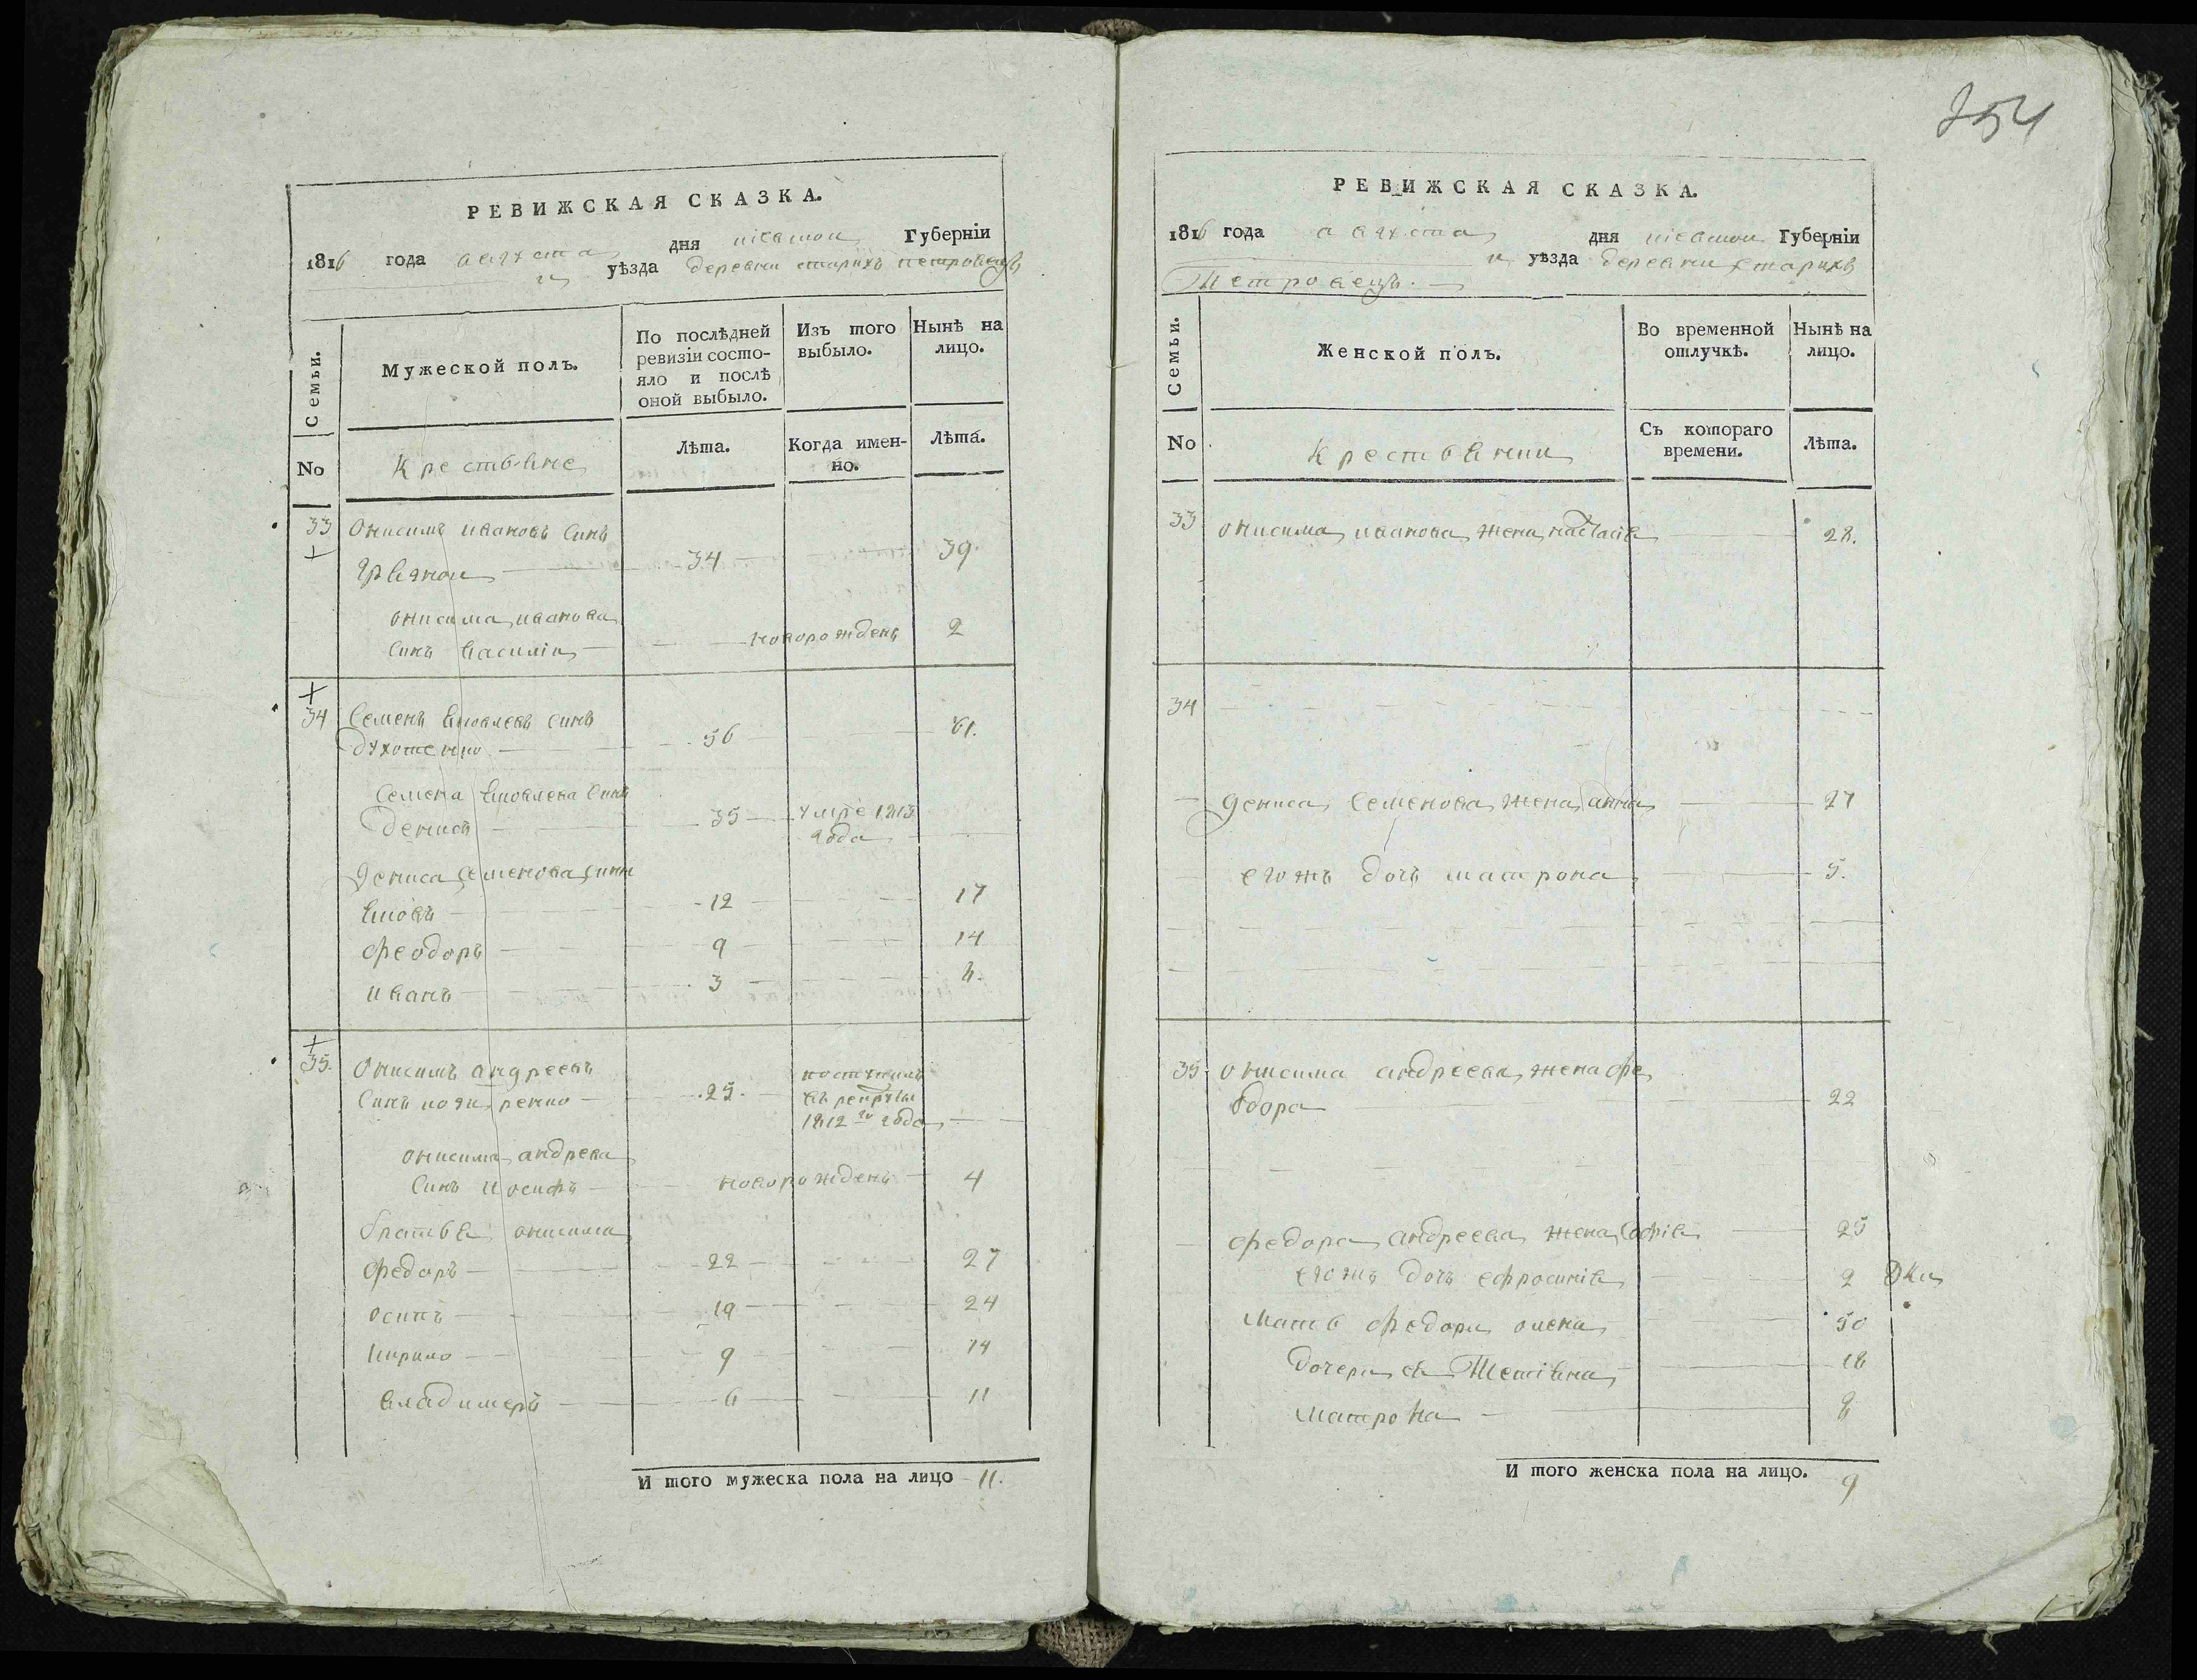 РЕВИЖСКАЯ СКАЗКА.
1816 года августа дня кіевской Губерніи
уѣзда деревни старихъ петровецъ
Семьи.
Мужеской полъ.
По послѣдней ревизіи состояло и послѣ оной выбыло.
Изъ того выбыло.
Нынѣ на лицо.
No
Крестьяне
Лѣта.
Когда именно.
Лѣта.
33 Онисимъ ивановъ синъ
34 39.
онисима иванова
синъ василій новорожденъ 2
34 Семенъ яковлевъ синъ
56 61.
семена яковлева синъ
денисъ 35 умре 1813
года
дениса семенова сини
яковъ 12 17
феодоръ 9 14
иванъ 3 8.
35. Онисимъ андреевъ
синъ 25. поступилъ
въ рекруты
1812 го года
онисима андреева
синъ иосифъ новорожденъ 4
братья онисима
федоръ 22 27
осипъ 19 24
кирило 9 14
владимеръ 6 11
И того мужеска пола на лицо 11.
254
РЕВИЖСКАЯ СКАЗКА.
1816 года августа дня кіевской Губерніи
уѣзда деревни старихъ
Петровецъ.
Семьи.
Женской полъ.
Во временной отлучкѣ.
Нынѣ на лицо.
No
Крестьянки
Съ котораго времени.
Лѣта.
33 онисима иванова жена настасія 28.
34
дениса семенова жена анна 27
егожъ дочь матрона 5.
35 онисима андреева жена фе
одора 22
федора андреева жена софія 25
егожъ дочь ефросинія 2
мать федора олена 50
дочери ея Тетіяна 18
матрона 8
И того женска пола на лицо. 9